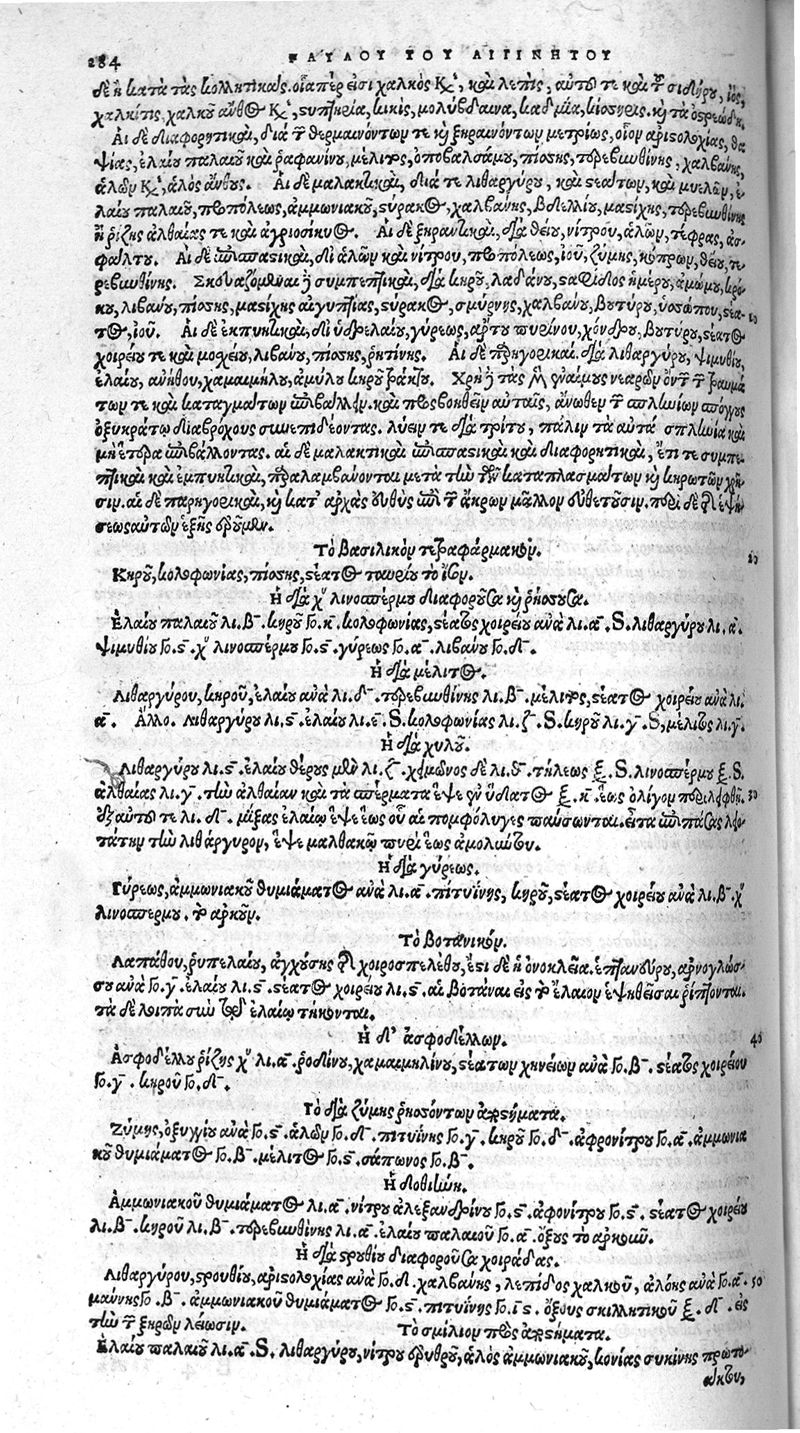 284 ΠΑΥΛΟΥ ΤΟΥ ΑΙΓΙΝΗΤΟΥ
δὲ ἢ κατὰ τὰς κολλητικάς. οἷάπερ εἰσι χαλκὸς κεκ. καὶ λεπὶς, αὐτοῦ τε καὶ τ σιδήρου, ἰὸς,
χαλκίτις, χαλκοῦ ἄνθος κεκ. στυπτηρία, κικὶς, μολύβδαινα, καδμία, κίσσηρις. καὶ τὰ ὀστρεώδη.
Αἱ δὲ διαφορητικαὶ, διὰ τ θερμαινόντων τε καὶ ξηραινόντων μετρίως, οἷον ἀριστολοχίας, θα
ψίας, ἐλαίου παλαιοῦ καὶ ῥαφανίνου, μέλιτος, ὀποβαλσάμου, πίσσης, τερεβινθίνης, χαλβάνης,
ἁλῶν κεκ. ἁλὸς ἄνθους. Αἱ δὲ μαλακτικαὶ, διά τε λιθαργύρου, καὶ στεάτων, καὶ μυελῶν, ἐ
λαίου παλαιοῦ, προπόλεως, ἀμμωνιακοῦ, στύρακος, χαλβάνης, βδελλίου, μαστίχης, τερεβινθίνης
ἢ ῥίζης ἀλθαίας τε καὶ ἀγριοσικύου. Αἱ δὲ ξηραντικαὶ, διὰ θείου, νίτρου, ἁλῶν, τέφρας, ἀσ-
φάλτου. Αἱ δὲ ἐπισπαστικαὶ, δι ἁλῶν καὶ νίτρου, προπόλεως, ἰοῦ, ζύμης, κόπρων, θείου, τε
ρεβινθίνης. Σκευάζομεν δὲ συμπεπτικαὶ, διὰ κηροῦ, λαδάνου, σταφίδος ἡμέρου, ἀμώμου, κρό
κου, λιβάνου, πίσσης, μαστίχης αἰγυπτίας, στύρακος, σμύρνης, χαλβάνου, βουτύρου, ὑσσώπου, στέα- 10
τος, ἰοῦ. Αἱ δὲ ἐκπυητικαὶ, δι ὑδρελαίου, γύρεως, ἄρτου πυρίνου, χόνδρου, βουτύρου, στέατος
χοιρείου τε καὶ μοσχείου, λιβάνου, πίσσης, ῥητίνης. Αἱ δὲ παρηγορικαὶ, διὰ λιθαργύρου, ψιμυθίου,
ἐλαίου, ἀνήθου, χαμαιμήλου, ἀμύλου κηροῦ Χρὴ δὲ τὰς μὲν ἐναίμους νεαρῶν ὄντων τ τραυμά
των τε καὶ καταγμάτων ἐπιβάλλειν. καὶ προσβοηθεῖν αὐταῖς, ἄνωθεν τ σπληνίων σπόγγους
ὀξυκράτῳ διαβρόχους συνεπιδέοντας. λύειν τε διὰ τρίτου, πάλιν τὰ αὐτὰ σπλήνια καὶ
μὴ ἕτερα ἐπιβάλλοντας. αἱ δὲ μαλακτικαὶ ἐπισπαστικαὶ καὶ διαφορητικαὶ, ἔτι τε συμπε-
πτικαὶ καὶ ἐμπυητικαὶ, παραλαμβάνονται μετὰ τὴν τῶν καταπλασμάτων καὶ κηρωτῶν χρῆ-
σιν. αἱ δὲ παρηγορικαὶ, καὶ κατ' ἀρχὰς εὐθὺς ἐπὶ τ ἄκρων μᾶλλον εὐθετοῦσιν. περὶ δὲ τ ἑψή-
σεως αὐτῶν ἑξῆς ἐροῦμεν.
Τὸ βασιλικὸν τετραφάρμακον. 20
Κηροῦ, κολοφωνίας, πίσσης, στέατος ταυρείου τὸ ἴσον.
Ἡ διὰ χυ λινοσπέρμου διαφοροῦσα καὶ ῥήσσουσα.
Ἐλαίου παλαιοῦ λι.β. κηροῦ γο.κ. κολοφωνίας, στέατος χοιρείου ἀνὰ λι.α.S. λιθαργύρου λι.α.
ψιμυθίου γο.ϛ. χυ λινοσπέρμου γο.ϛ. γύρεως γο.α. λιβάνου γο.δ.
Ἡ διὰ μέλιτος.
Λιθαργύρου, κηροῦ, ἐλαίου ἀνὰ λι.δ. τερεβινθίνης λι.β. μέλιτος, στέατος χοιρείου ἀνὰ λι
α. Ἄλλο. λιθαργύρου λι.ϛ. ἐλαίου λι.ε.S. κολοφωνίας λι.ζ.S. κηροῦ λι.γ.S, μέλιτος λι.γ.
Ἡ διὰ χυλοῦ.
Λιθαργύρου λι.ϛ. ἐλαίου θέρους μὲν λι.ζ. χειμῶνος δὲ λι.δ. τήλεως ξ.S. λινοσπέρμου ξ.S.
ἀλθαίας λι.γ. τὴν ἀλθαίαν καὶ τὰ σπέρματα ἕψε ἐν ὕδατος ξ.κ. ἕως ὀλίγον περιλειφθῇ. 30
ἐξ αὐτοῦ τε λι.δ. μίξας ἐλαίῳ ἕψε ἕως οὗ αἱ πομφόλυγες παύσωνται. εἶτα ἐπιπάσας λειο-
τάτην τὴν λιθάργυρον, ἕψε μαλθακῷ πυρὶ ἕως ἀμολύντου.
Ἡ διὰ γύρεως.
Γύρεως, ἀμμωνιακοῦ θυμιάματος ἀνὰ λι.α. πιτυΐνης, κηροῦ, στέατος χοιρείου ἀνὰ λι.β. χυ
λινοσπέρμου. τὸ ἀρκοῦν.
Τὸ βοτανικόν.
Λαπάθου, ῥυπελαίου, ἀγχούσης τ χοιροσπελέθου, ἔστι δὲ ἡ ὀνοκλεῖα. ἑπτανεύρου, ἀρνογλώσ-
σου ἀνὰ γο.γ. ἐλαίου λι.ϛ. στέατος χοιρείου λι.ϛ. αἱ βοτάναι εἰς τὸ ἔλαιον ἑψηθεῖσαι ῥίπτονται.
τὰ δὲ λοιπὰ σὺν τῷ ἐλαίῳ τήκονται.
Ἡ δι' ἀσφοδέλλων. 40
Ἀσφοδέλλου ῥίζης χυ λι.α. ῥοδίνου, χαμαιμηλίνου, στεάτων χηνείων ἀνὰ γο.β. στέατος χοιρείου
γο.γ. κηροῦ γο.δ.
Τὸ διὰ ζύμης ῥησσόντων ἀποστήματα.
Ζύμης, ὀξυγγίου ἀνὰ γο.ϛ. ἁλῶν γο.δ. πιτυΐνης γο.γ. κηροῦ γο.δ. ἀφρονίτρου γο.α. ἀμμωνια
κοῦ θυμιάματος γο.β. μέλιτος γο.ϛ. σάπωνος γο.β.
Ἡ δοθιήνη.
Ἀμμωνιακοῦ θυμιάματος λι.α. νίτρου ἀλεξανδρίνου γο.ϛ. ἀφονίτρου γο.ϛ. στέατος χοιρείου
λι.β. κηροῦ λι.β. τερεβινθίνης λι.α. ἐλαίου παλαιοῦ γο.α. ὄξους τὸ ἀρκοῦν.
Ἡ διὰ στρουθίου διαφοροῦσα χοιράδας.
Λιθαργύρου, στρουθίου, ἀριστολοχίας ἀνὰ γο.δ. χαλβάνης, λεπίδος χαλκοῦ, ἀλόης ἀνὰ γο.α. 50
μάννης γο.β. ἀμμωνιακοῦ θυμιάματος γο.ϛ. πιτυΐνης γο.ιϛ. ὄξους σκιλλητικοῦ ξ.δ. εἰς
τὴν τ ξηρῶν λείωσιν. Τὸ σμίλιον πρὸς ἀποστήματα.
Ἐλαίου παλαιοῦ λι.α.S. λιθαργύρου, νίτρου ἐρυθροῦ, ἁλὸς ἀμμωνιακοῦ, κονίας συκίνης πρωτο-